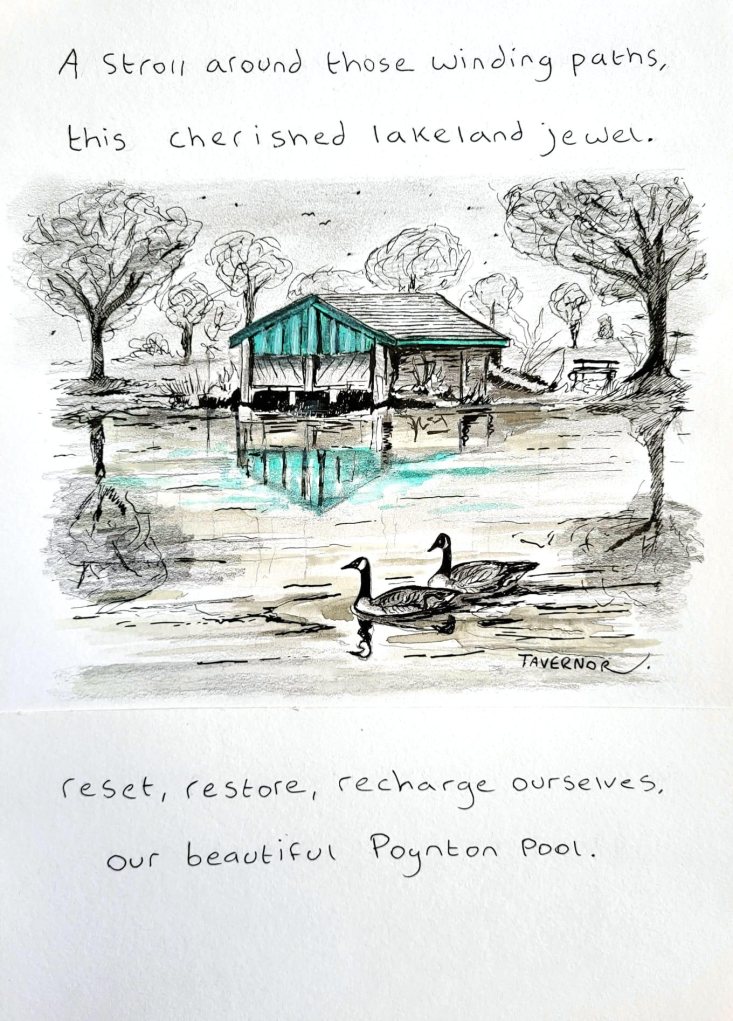 A stroll around those winding paths,
this cherished lakeland jewel.
TAVERNOR.
reset, restore, recharge ourselves,
our beautiful Poynton Pool.